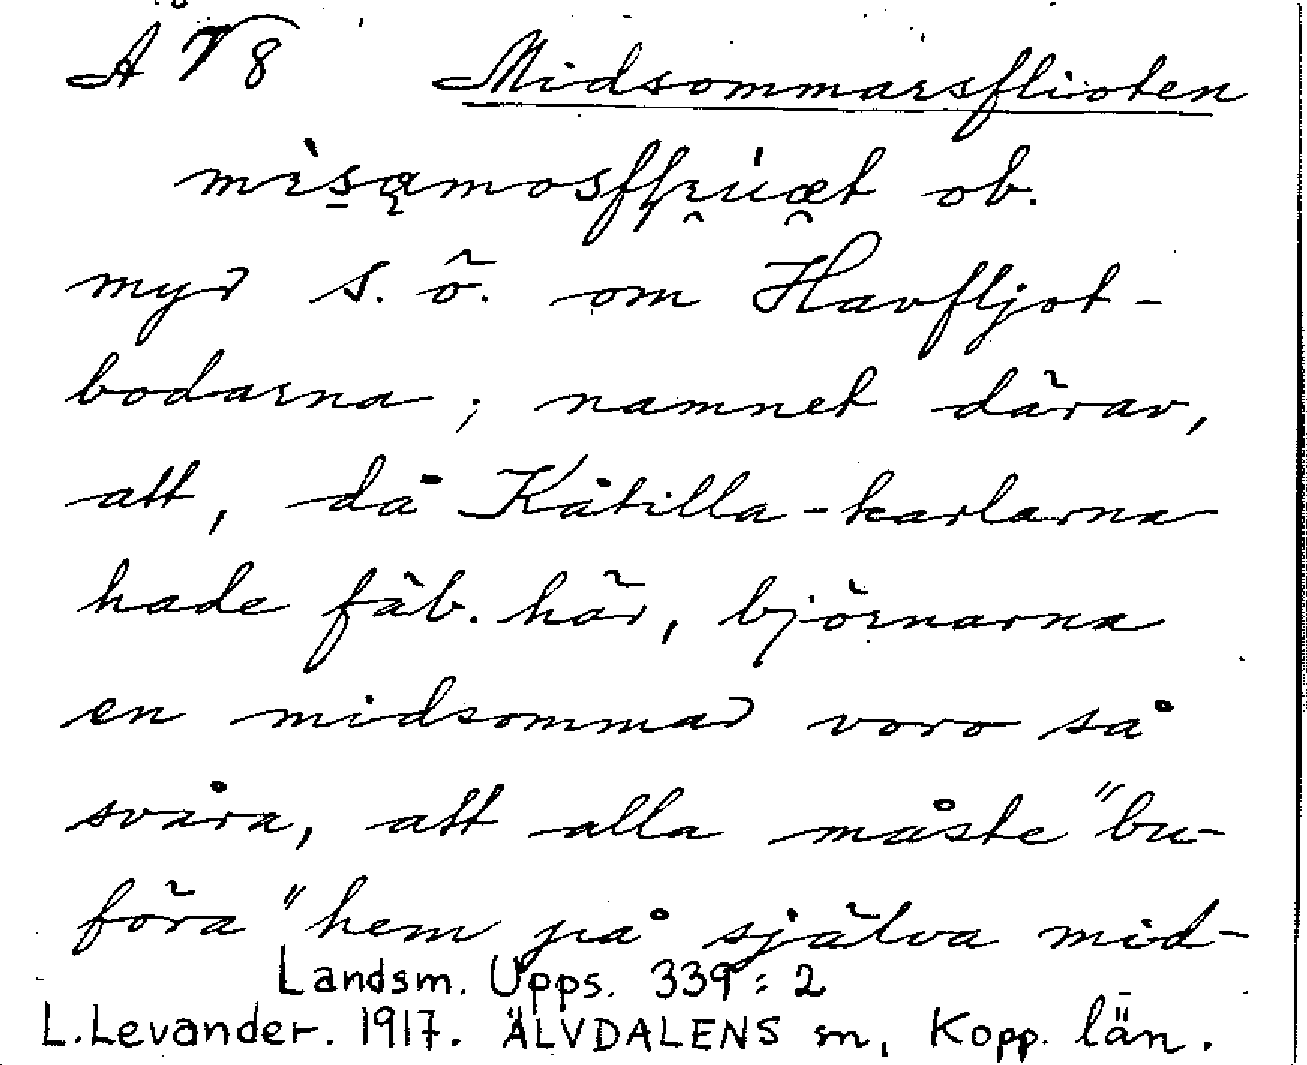 Å V 8 Midsommarsflioten
ob.
myr s. ö. om Havfljot-
bodarna; namnet därav,
att, då Kåtilla-karlarna
hade fäb. här, björnarna
en midsommar voro så
svåra, att alla måste "bu-
föra" hem på själva mid-
Landsm. Upps. 339:2
L. Levander. 1917. ÄLVDALENS sn, Kopp. län.